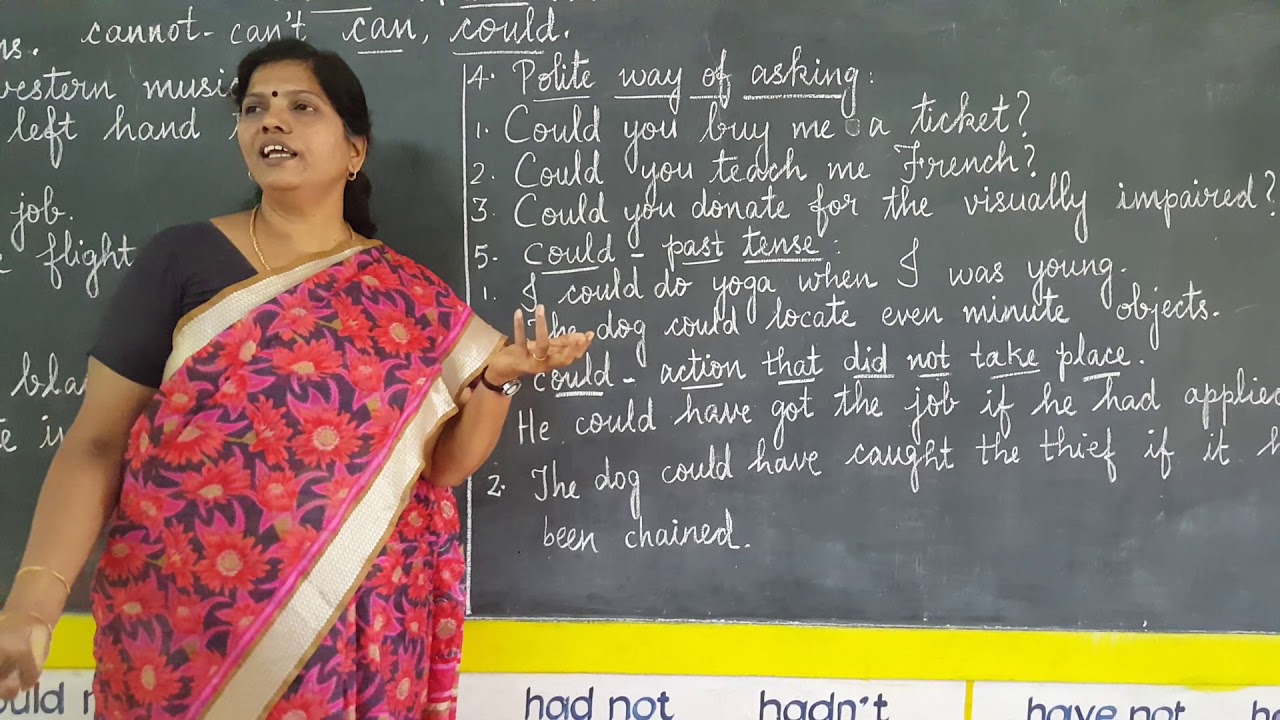 ns. cannot - can't can, could.
western music
left hand
job.
flight
4. Polite way of asking:
1. Could you buy me a ticket?
2. Could you teach me French?
3. Could you donate for the visually impaired?
5. could - past tense:
1. I could do yoga when I was young.
The dog could locate even minute objects.
could - action that did not take place.
He could have got the job if he had applied
2. The dog could have caught the thief if it h
been chained.
had not hadn't have not